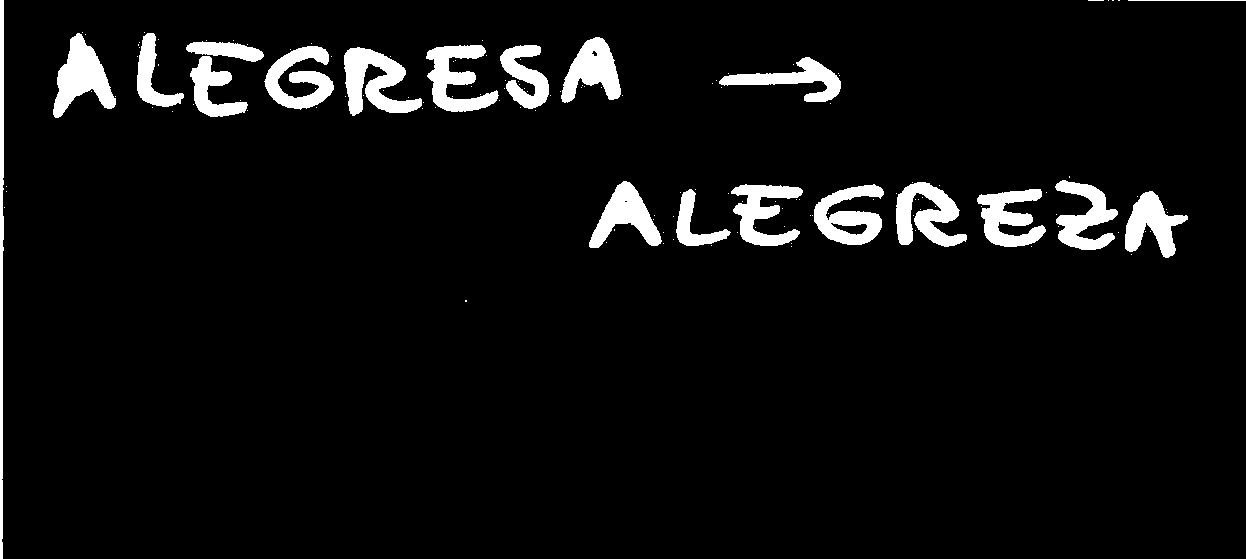 ALEGRESA →
ALEGREZA